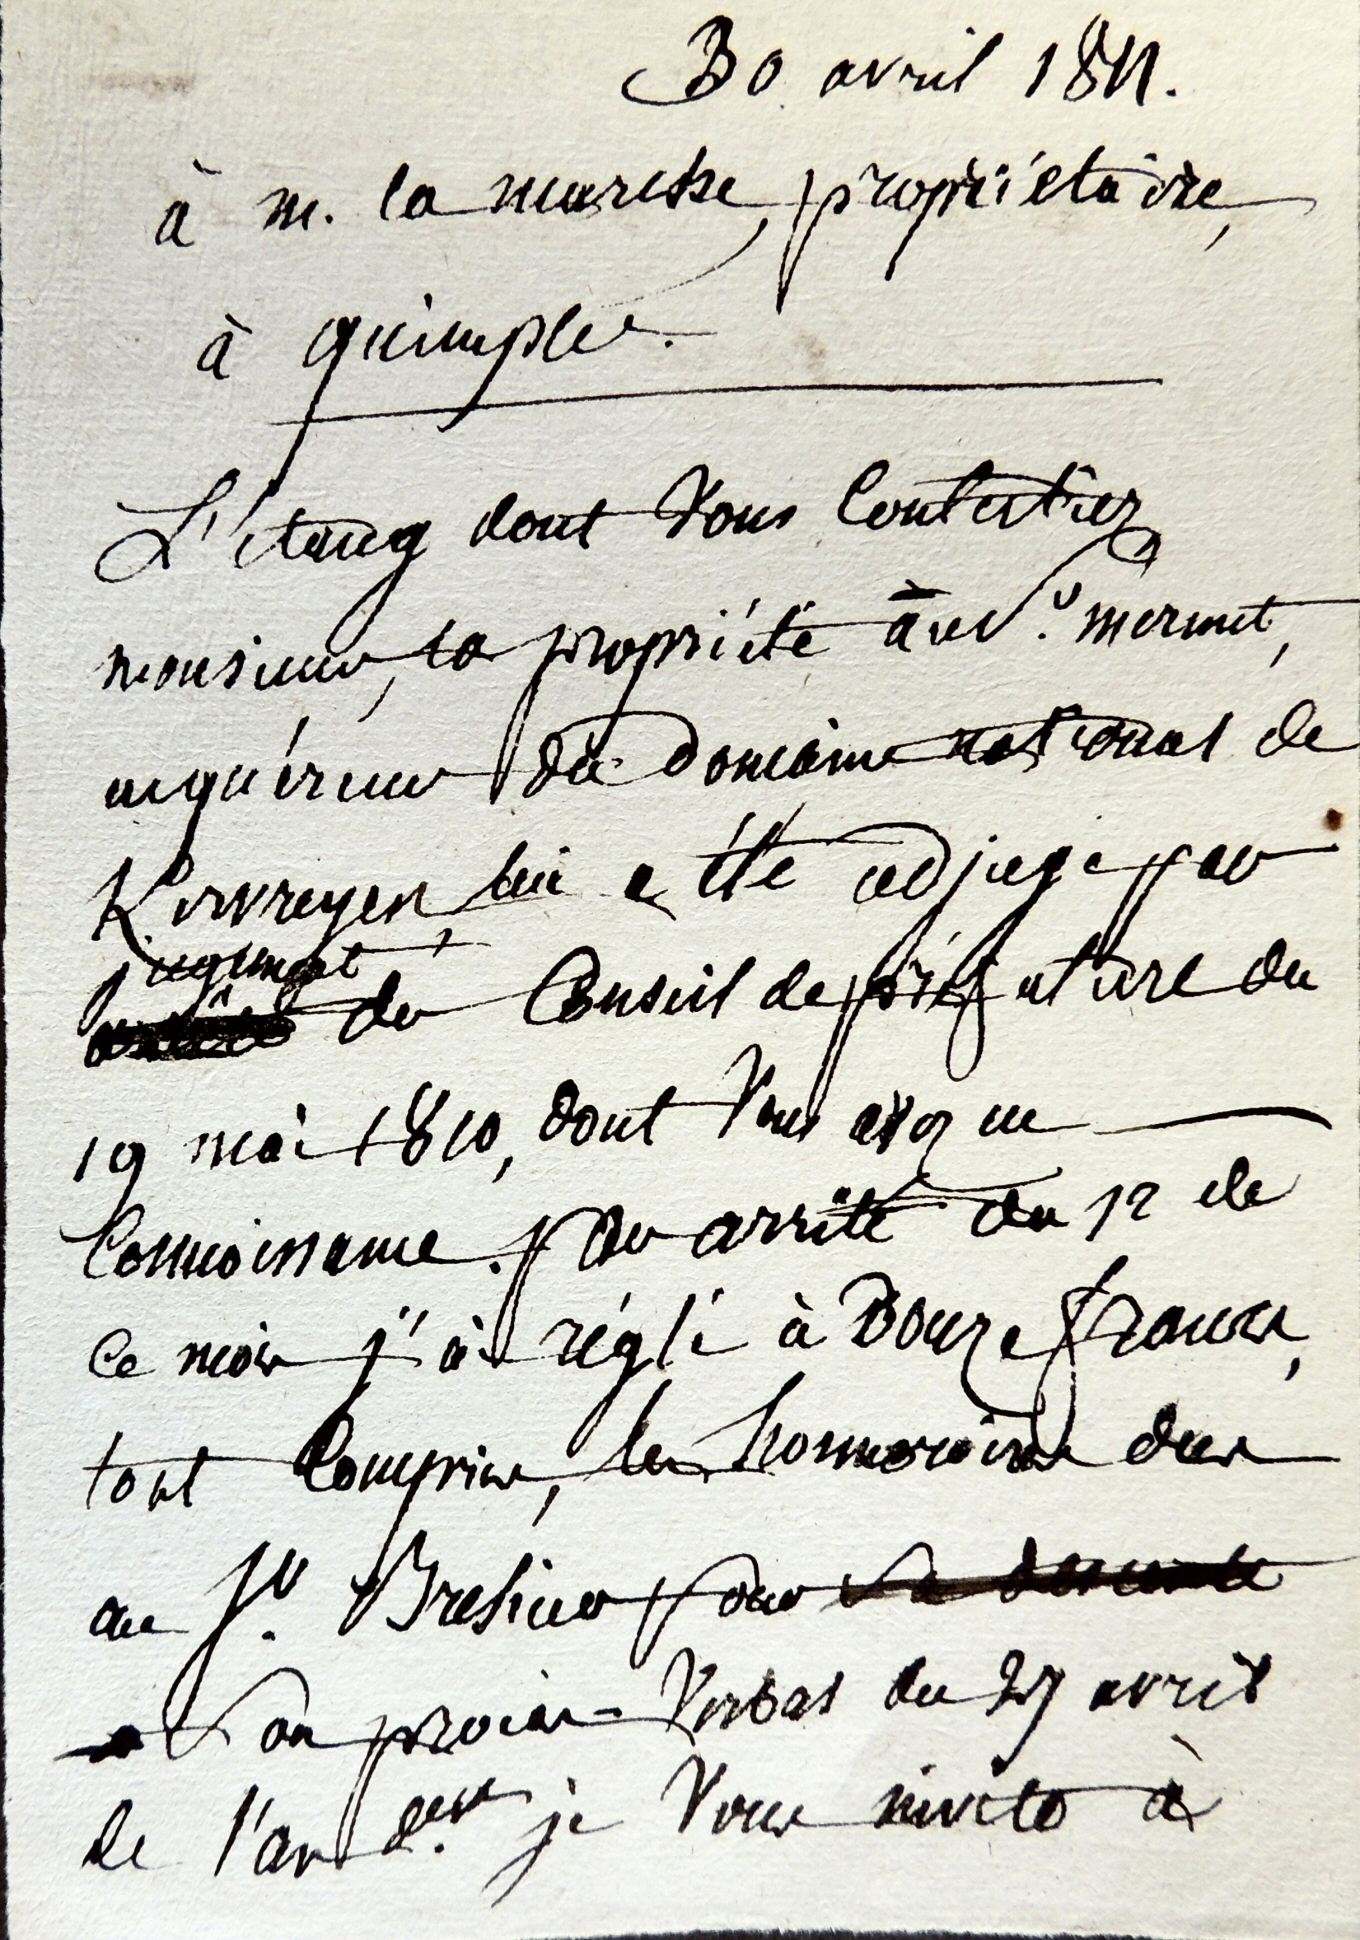 30 avril 1811.
à m. la marche, propriétaire,
à quimplé.
L'étang dont Vous Contestiez
monsieur, la propriété au Sr. mermet,
acquéreur du domaine national de
Kervreyen, lui a été adjugé par
jugement
du Conseil de préfecture du
19 mai 1810, dont Vous avez eu
Connoissance. par arrêté du 12 de
Ce mois j'ai réglé à Douze francs,
tout Compris, les honnoraires dus
au Sr. Bresier pour sa descente
Son procès-Verbal du 27 avril
de l'an der. je Vous invite à